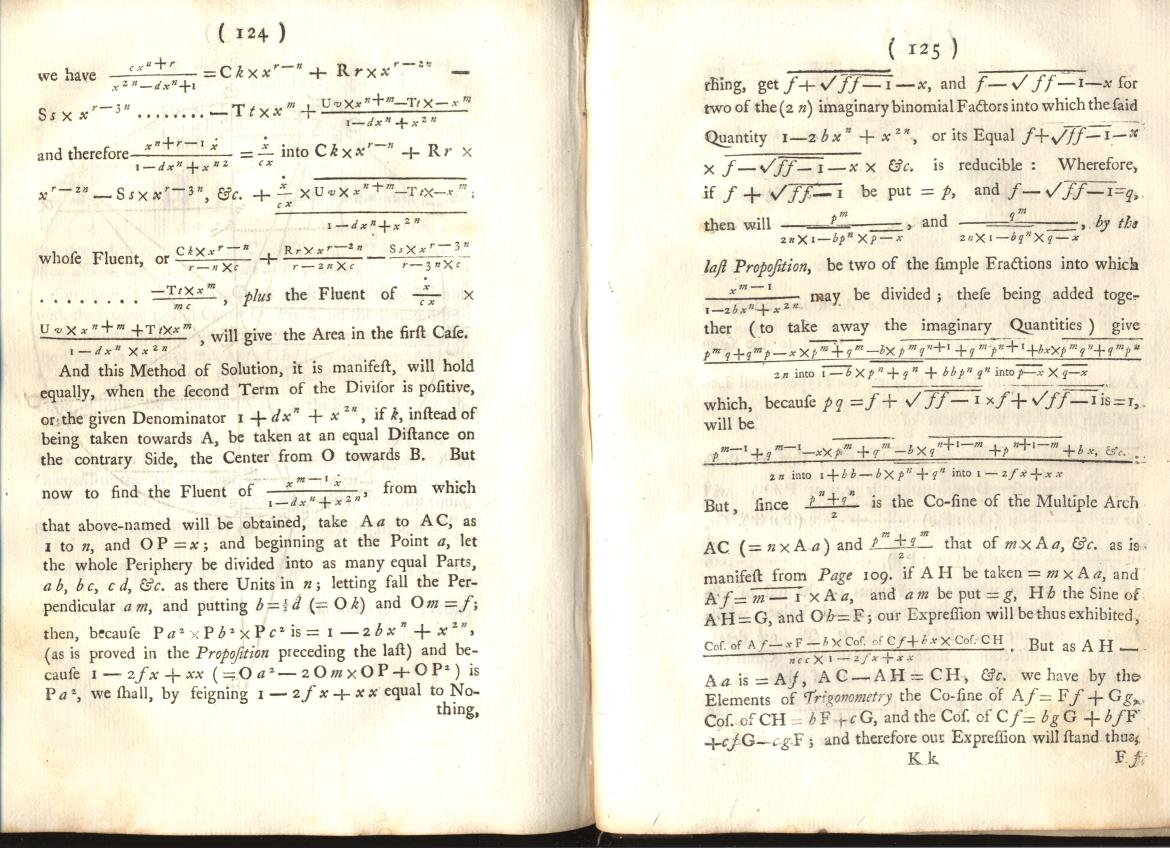 ( 124 )
we have cxⁿ⁺ʳ / x²ⁿ—dxⁿ+1 = C k × xʳ⁻ⁿ + R r × xʳ⁻²ⁿ —
S s × xʳ⁻³ⁿ ........ — T t × xᵐ + U v × xⁿ⁺ᵐ—T t × — xᵐ / 1—dxⁿ+x²ⁿ
and therefore xⁿ⁺ʳ⁻¹ ẋ / 1—dxⁿ+xⁿ² = ẋ / cx into C k × xʳ⁻ⁿ + R r ×
xʳ⁻²ⁿ — S s × xʳ⁻³ⁿ, &c. + ẋ / cx × U v × xⁿ⁺ᵐ—T t × — xᵐ / 1—dxⁿ+x²ⁿ ;
whoſe Fluent, or C k × xʳ⁻ⁿ / r—n × c + R r × xʳ⁻²ⁿ / r—2n × c — S s × xʳ⁻³ⁿ / r—3n × c
........ —T t × xᵐ / mc , plus the Fluent of ẋ / cx ×
U v × xⁿ⁺ᵐ + T t × xᵐ / 1—dxⁿ × x²ⁿ , will give the Area in the firſt Caſe.
And this Method of Solution, it is manifeſt, will hold
equally, when the ſecond Term of the Diviſor is poſitive,
or the given Denominator 1 + dxⁿ + x²ⁿ, if k, inſtead of
being taken towards A, be taken at an equal Diſtance on
the contrary Side, the Center from O towards B. But
now to find the Fluent of xᵐ⁻¹ ẋ / 1—dxⁿ+x²ⁿ, from which
that above-named will be obtained, take A a to AC, as
1 to n, and OP = x; and beginning at the Point a, let
the whole Periphery be divided into as many equal Parts,
a b, b c, c d, &c. as there Units in n; letting fall the Per-
pendicular a m, and putting b=½d (= O k) and O m = f;
then, becauſe P a² × P b² × P c² is = 1 — 2 b xⁿ + x²ⁿ,
(as is proved in the Propoſition preceding the laſt) and be-
cauſe 1 — 2 f x + x x (= O a² — 2 O m × OP + OP²) is
P a², we ſhall, by feigning 1 — 2 f x + x x equal to No-
thing,
( 125 )
thing, get f + √ff—1—x, and f—√ff—1—x for
two of the (2 n) imaginary binomial Factors into which the ſaid
Quantity 1—2 b xⁿ + x²ⁿ, or its Equal f+√ff—1—x
× f—√ff—1—x × &c. is reducible : Wherefore,
if f + √ff—1 be put = p, and f—√ff—1=q,
then will pᵐ / 2n×1—bpⁿ×p—x, and qᵐ / 2n×1—bqⁿ×q—x, by the
laſt Propoſition, be two of the ſimple Fractions into which
xᵐ⁻¹ / 1—2bxⁿ+x²ⁿ may be divided ; theſe being added toge-
ther (to take away the imaginary Quantities) give
pᵐq+qᵐp—x×pᵐ+qᵐ—b×pᵐqⁿ⁺¹+qᵐpⁿ⁺¹+bx×pᵐqⁿ+qᵐpⁿ / 2n into 1—b×pⁿ+qⁿ + bbpⁿqⁿ into p—x × q—x
which, becauſe pq = f + √ff—1 × f + √ff—1 is = 1,
will be
pᵐ⁻¹+qᵐ⁻¹—x×pᵐ+qᵐ—b×qⁿ⁺¹⁻ᵐ+pⁿ⁺¹⁻ᵐ+bx, &c. / 2n into 1+bb—b×pⁿ+qⁿ into 1—2fx+xx .
But, ſince pⁿ+qⁿ / 2 is the Co-ſine of the Multiple Arch
AC (= n × A a) and pᵐ+qᵐ / 2 that of m × A a, &c. as is
manifeſt from Page 109. if A H be taken = m × A a, and
A f = m—1 × A a, and a m be put = g, H h the Sine of
AH=G, and O h=F; our Expreſſion will be thus exhibited,
Coſ. of A f—xF—b×Coſ. of C f+bx×Coſ. CH / ncc×1—2fx+xx . But as A H —
A a is = A f, AC—AH = CH, &c. we have by the
Elements of Trigonometry the Co-ſine of A f = F f + G g,
Coſ. of CH = b F + c G, and the Coſ. of C f = b g G + b f F
+c f G—c g F ; and therefore our Expreſſion will ſtand thus,
K k F f